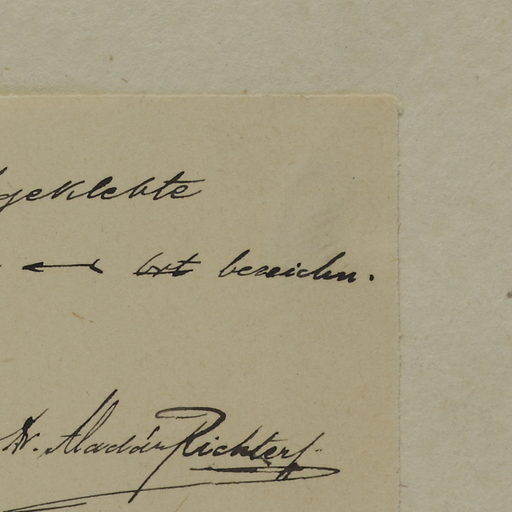 geklebte
ist bezeichn.
Dr. Aladár Richter